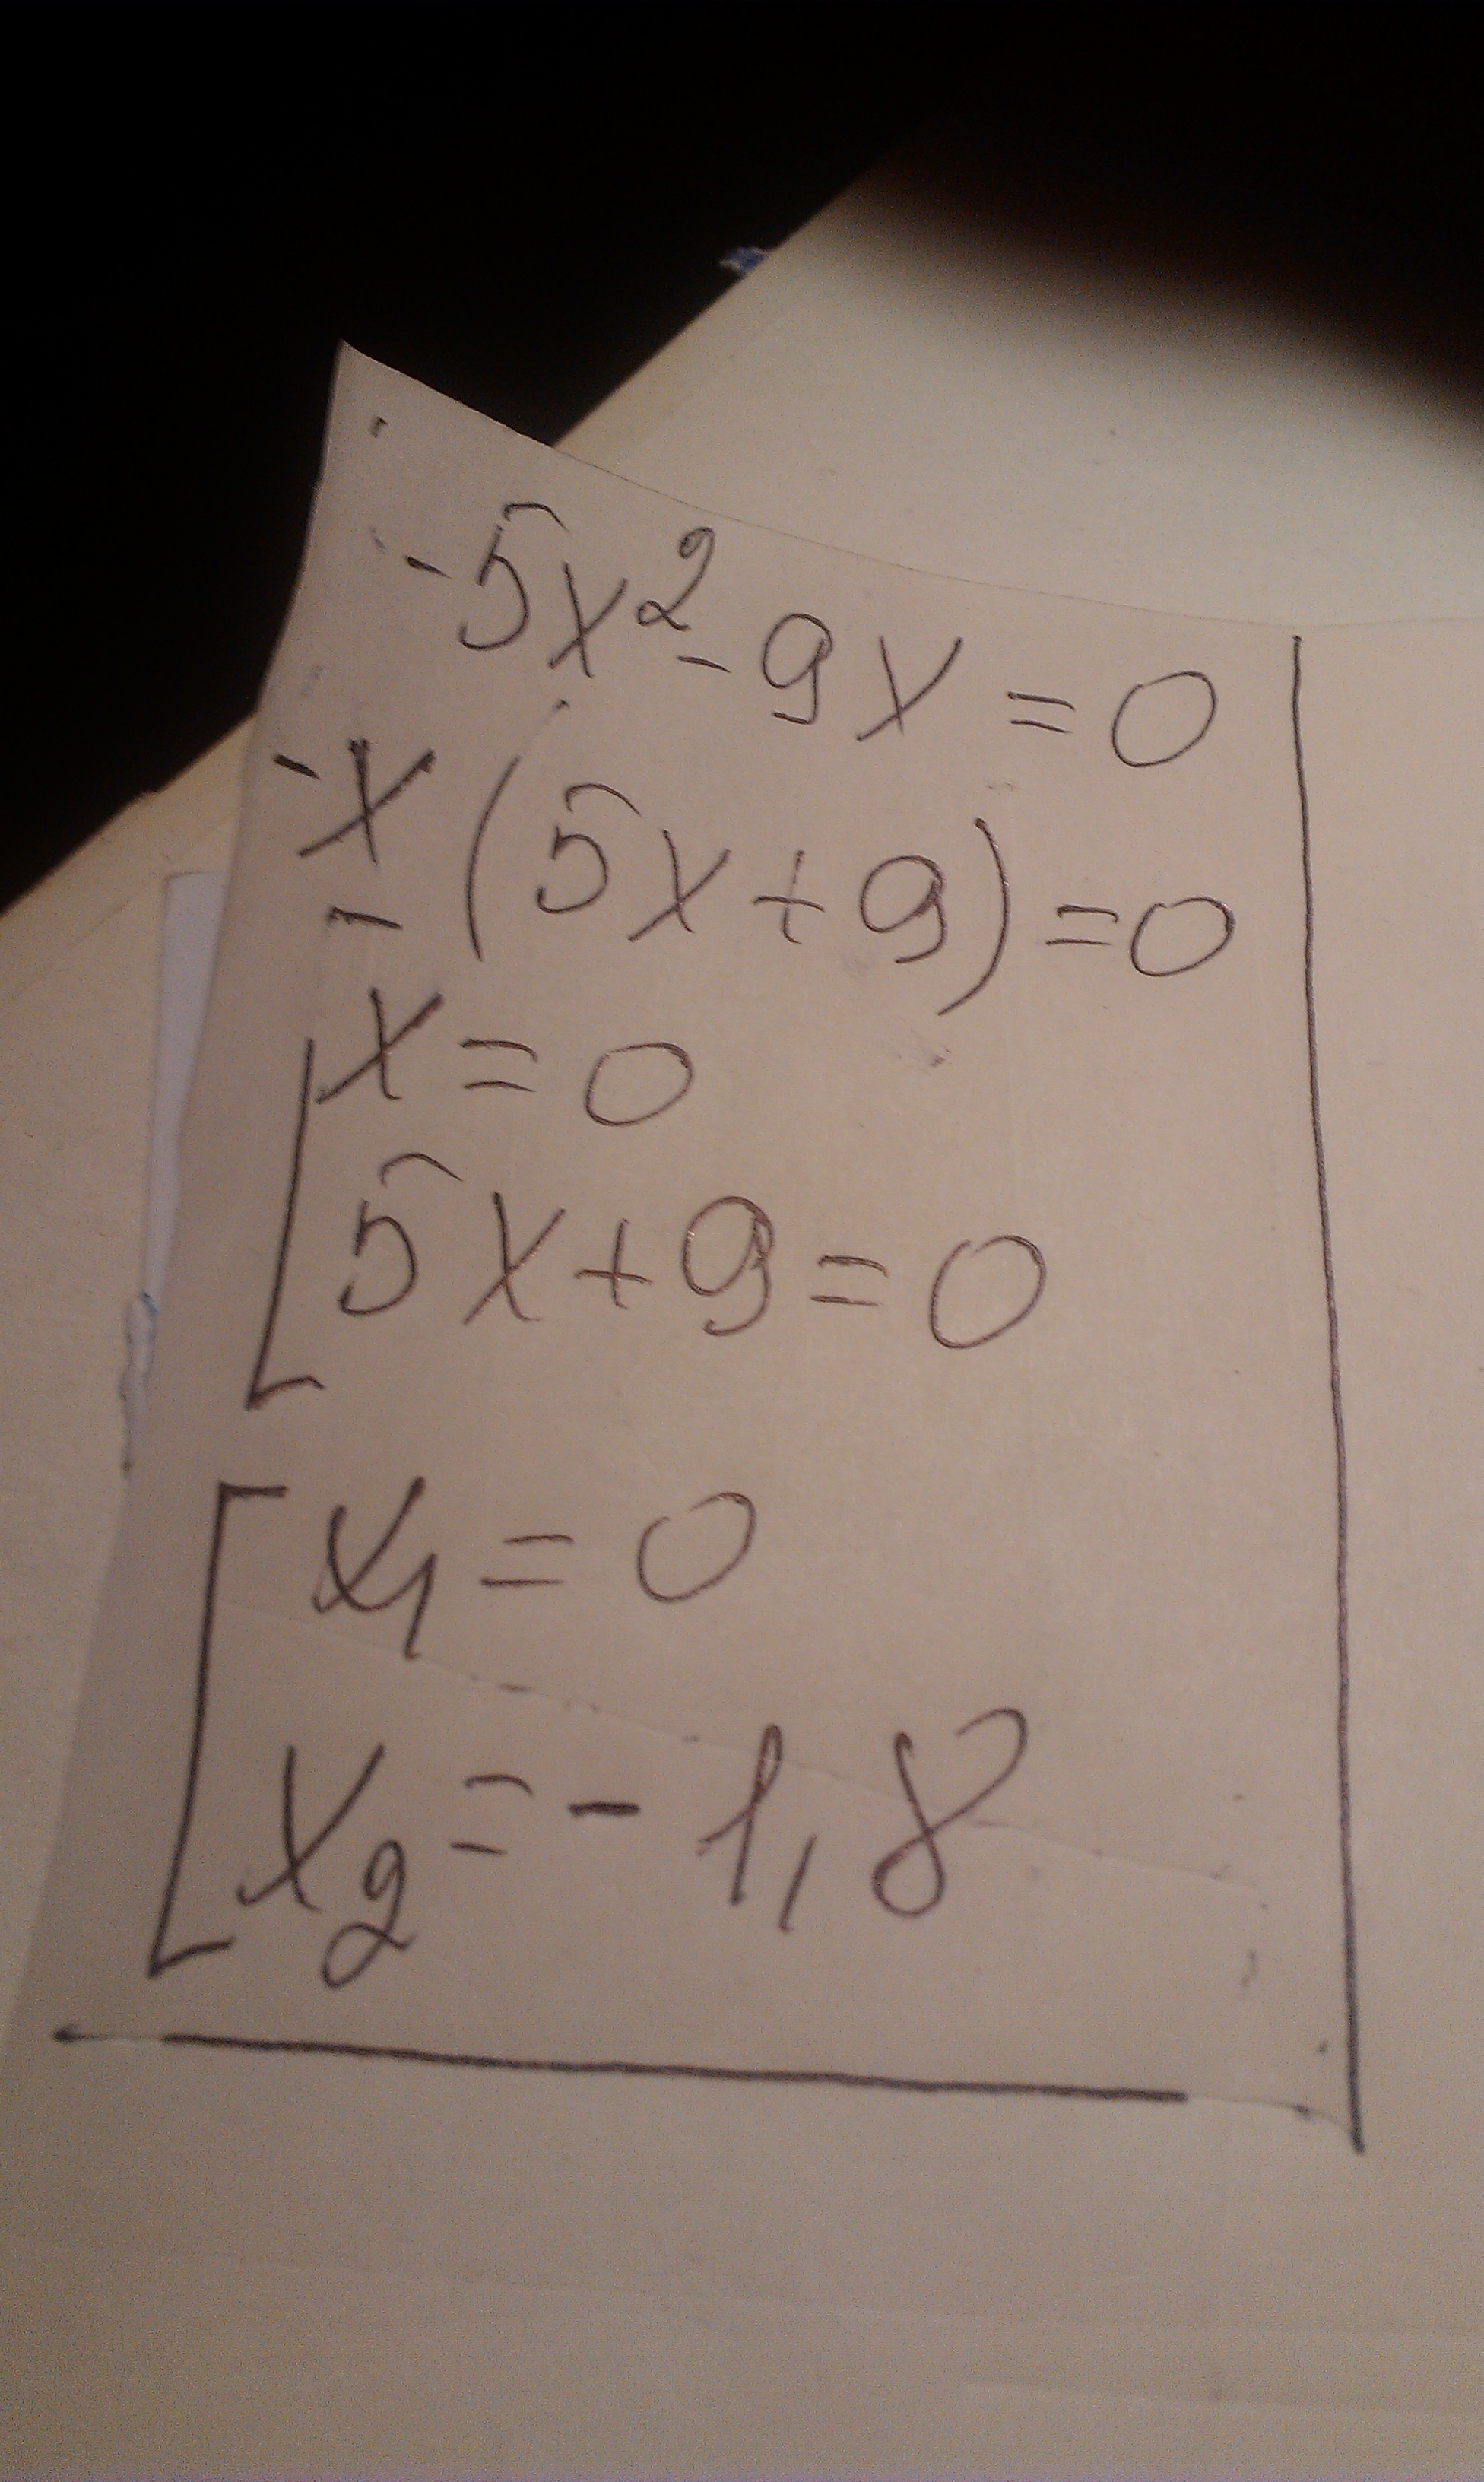 -5x²-9x=0
-x(5x+9)=0
x=0
5x+9=0
x₁=0
x₂=-1,8